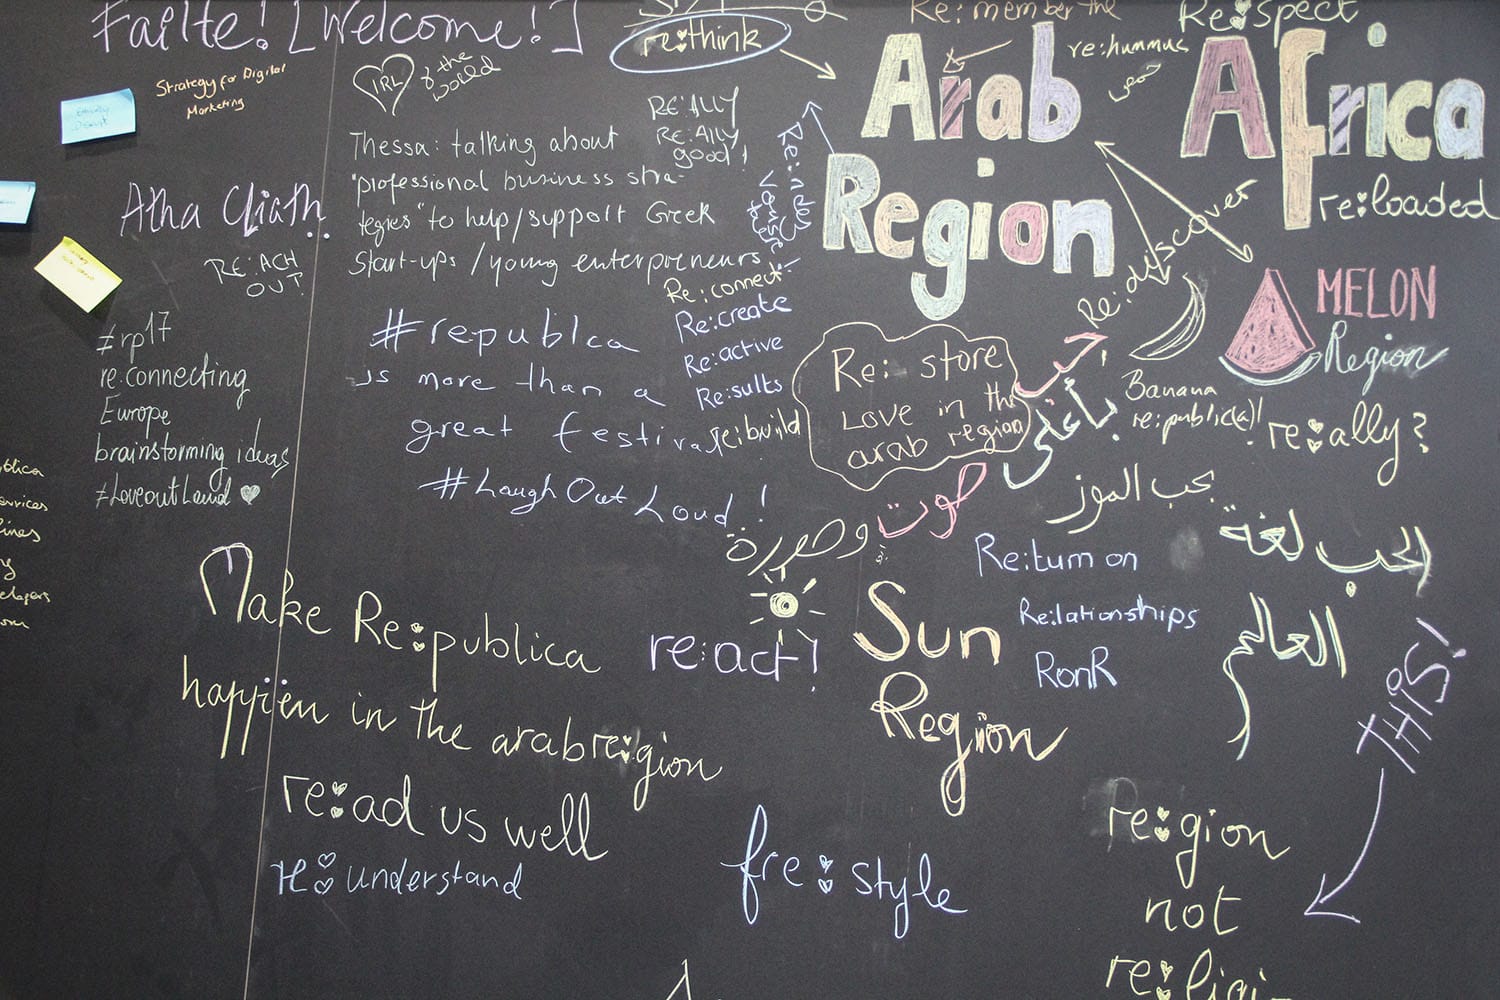 Failte! [Welcome!]
Strategy for Digital
Marketing
IRL
of the
world
RE:ALLY
RE:ALLY
good!
Thessa: talking about
"professional business stra-
tegies" to help/support Greek
Start-ups / young enterpreneurs
Atha Cliath
RE:ACH
OUT
#rp17
re:connecting
Europe
brainstorming ideas
#LoveoutLoud
#republca
is more than a
great festival
#LaughOutLoud!
re:think
Re:member the
Re:spect
Arab
Region
re:hummus
Africa
re:loaded
Re:ndez
vouser
Re:connect
Re:create
Re:active
Re:sults
re:build
Re:discover
MELON
Region
Re: store
Love in the
arab region
حب
بأعلى
صوت
وصورة
Banana
re:public(a)!
re:ally?
بحب الموز
الحب لغة
العالم
Re:turn on
Re:lationships
RonR
Sun
Region
Make Re:publica
happen in the arabre:gion
re:act!
re:ad us well
re:understand
fre:style
THIS!
re:gion
not
re:ligi
blica
ervices
lines
y
elopers